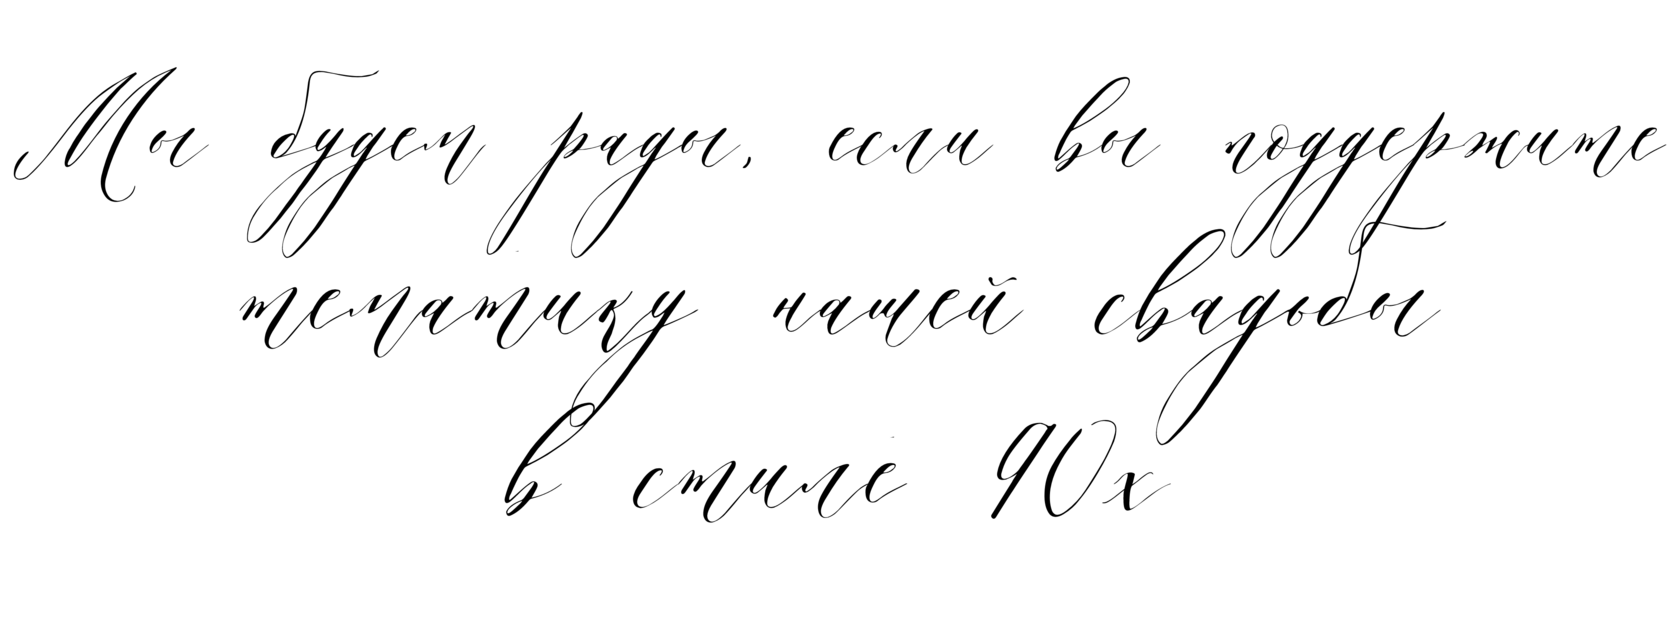 Мы будем рады, если вы поддержите
тематику нашей свадьбы
в стиле 90х